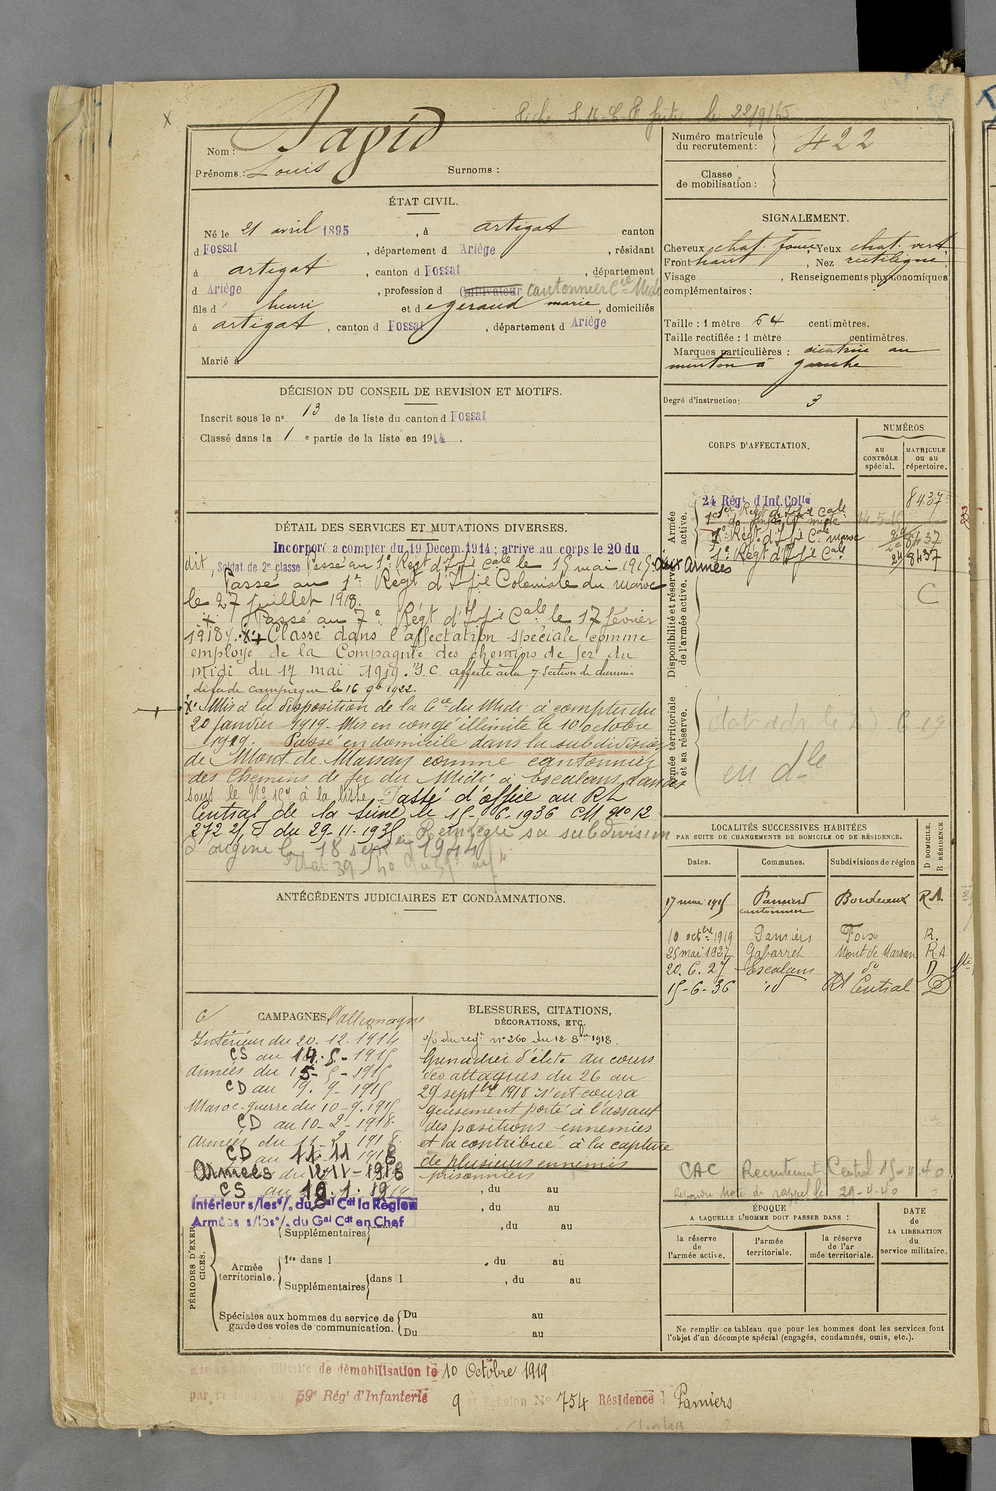 Nom : Pagid
Prénoms : Louis Surnoms :
ÉTAT CIVIL.
Né le 21 avril 1895, à artigat canton
d Fossat, département d Ariège, résidant
à artigat, canton d Fossat, département
d Ariège, profession d Cultivateur cantonnier Cie Midi
fils d henri et d egeraud marie, domiciliés
à artigat, canton d Fossat, département d Ariège
Marié à
DÉCISION DU CONSEIL DE REVISION ET MOTIFS.
Inscrit sous le n° 13 de la liste du canton d Fossat
Classé dans la 1e partie de la liste en 1914.
DÉTAIL DES SERVICES ET MUTATIONS DIVERSES.
Incorporé a compter du 19 Decem.1914 ; arrivé au corps le 20 du
dit, Soldat de 2e classe Passé au 1er Regt d'Ifie Cale le 15 mai 1915 aux Armées
Passé au 1er Regt d'Ifie Coloniale du maroc
le 27 juillet 1918.
Passé au 7e Régt d'Ifie Cale le 17 février
1918. Classé dans l'affectation spéciale comme
employé de la Compagnie des chemins de fer du
midi du 17 mai 1919. I.C. affecté à la 7 Section de chemins
de fer de campagne le 16 9b 1922.
Mis à la disposition de la Cie du Midi à compter du
20 janvier 1919. Mis en congé illimité le 10 octobre
1919. Passé en domicile dans la subdivision
de Mont de Marsan comme cantonnier
des Chemins de fer du Midi à Escalans, Landes
sous le N° à la liste. Passé d'office au RT
Central de la Seine le 15-6-1936 CM n° 12
272 2/I du 29-11-1935. Réintègre sa subdivision
d'origine le 18 sept 1944
ANTÉCÉDENTS JUDICIAIRES ET CONDAMNATIONS.
C CAMPAGNES, c/ allemagne
Intérieur du 20.12.1914
CS au 14.5-1915
armées du 15-5-1915
CD au 9.9-1915
Maroc-guerre du 10-9-1915
CD au 10-2-1918
armées du 11-2-1918
CD au 11-11-1918
Armées du 12-11-1918
CS au 19.1.1919
Intérieur s/les o/. du Gal Cdt la Région
Armées s/les o/. du Gal Cdt en Chef
BLESSURES, CITATIONS,
DÉCORATIONS, ETC.
o/ du regt n° 260 du 12 8bre 1918.
Grenadier d'élite au cours
des attaques du 26 au
29 septbre 1918 s'est coura
geusement porté à l'assaut
des positions ennemies
et a contribué à la capture
de plusieurs ennemis
prisonniers
, du au
, du au
, du au
PÉRIODES D'EXERCICES.
Supplémentaires
Armée territoriale.
1re dans l , du au
Supplémentaires dans l , du au
Spéciales aux hommes du service de
garde des voies de communication.
Du au
Du au
Numéro matricule
du recrutement : 422
Classe
de mobilisation :
SIGNALEMENT.
Cheveux chat. foncé Yeux chat. vert
Front haut, Nez rectiligne,
Visage , Renseignements physionomiques
complémentaires :
Taille : 1 mètre 64 centimètres.
Taille rectifiée : 1 mètre centimètres.
Marques particulières : cicatrice au
menton à gauche
Degré d'instruction : 3
CORPS D'AFFECTATION.
NUMÉROS
AU CONTRÔLE spécial.
MATRICULE OU AU répertoire.
Armée active.
24 Régt d'Inf. Colle 8437
1er Regt d'Ifie Cale
Regt d'Ifie Cale maroc 8437
7e Regt d'Ifie Cale 8437
Disponibilité et réserve de l'armée active.
C
Armée territoriale et sa réserve.
en dle
LOCALITÉS SUCCESSIVES HABITÉES
PAR SUITE DE CHANGEMENTS DE DOMICILE OU DE RÉSIDENCE.
Dates. Communes. Subdivisions de région D DOMICILE. R RÉSIDENCE.
cantonnier Bordeaux RA
10 octbre 1919 Pamiers Foix R.
25 mai 1927 Gabarret Mont de Marsan RA
20.6.27 Escalans do D
15-6-36 id RT Central D
CAC Recrutement Central 15-11-40
29-4-40
ÉPOQUE
A LAQUELLE L'HOMME DOIT PASSER DANS :
la réserve de l'armée active.
l'armée territoriale.
la réserve de l'armée territoriale.
DATE de LA LIBÉRATION du service militaire.
Ne remplir ce tableau que pour les hommes dont les services font
l'objet d'un décompte spécial (engagés, condamnés, omis, etc.).
de démobilisation le 10 Octobre 1919
59e Rég' d'Infanterie 9 échelon N° 754 Résidence Pamiers